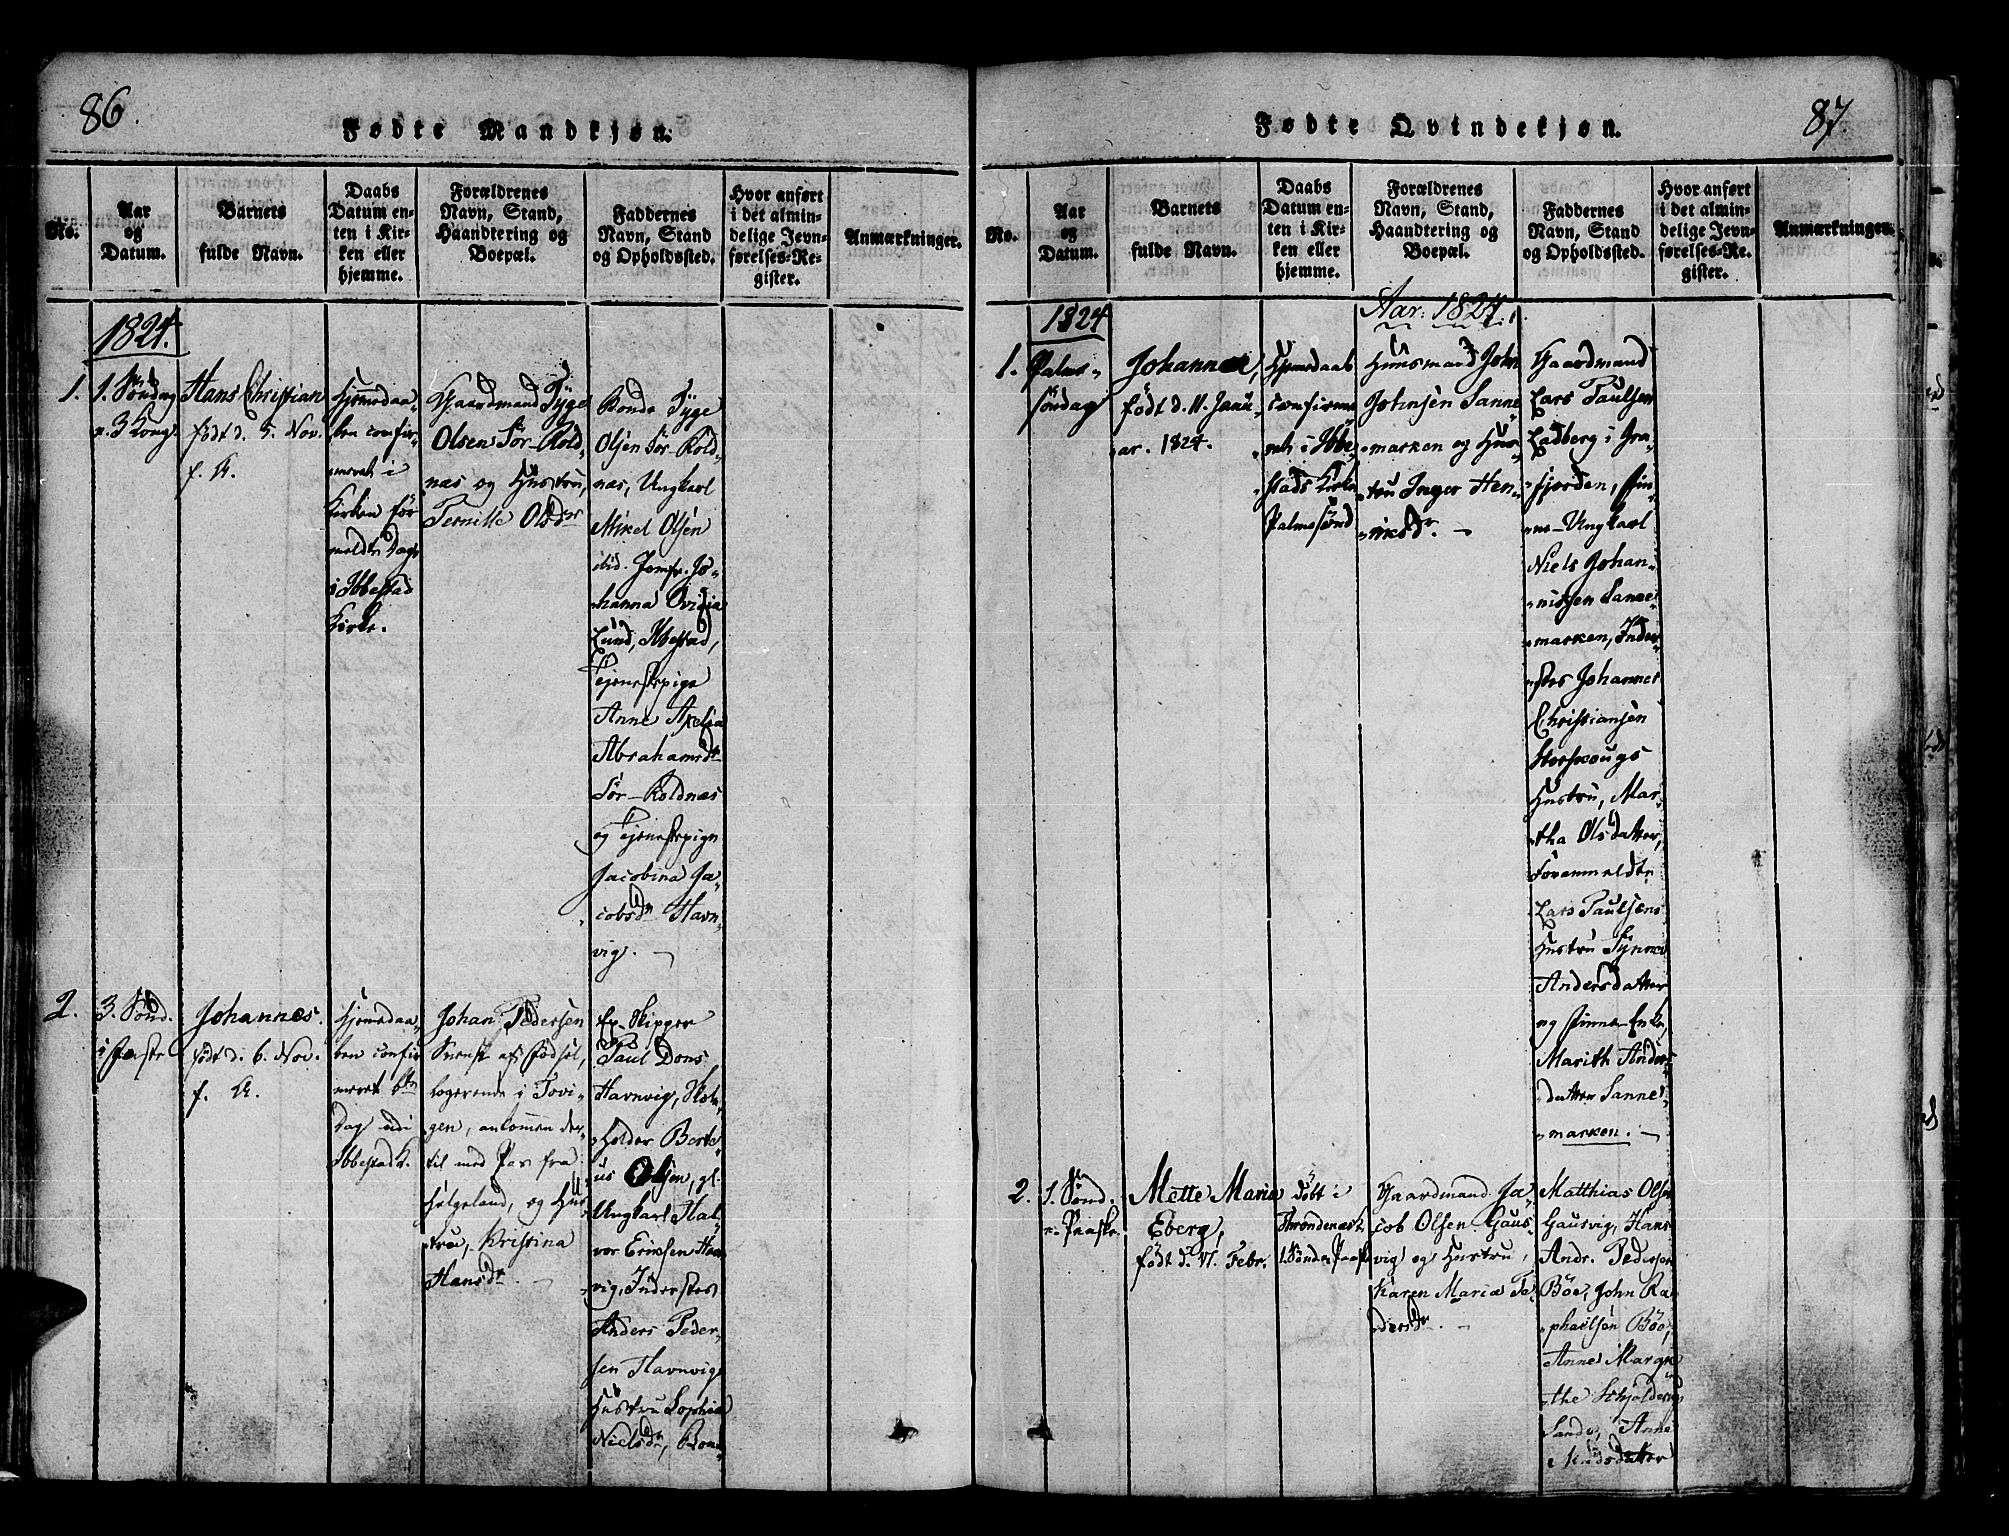 86.
Fødte Mandkjøn.
No.
Aar
og
Datum.
Barnets
fulde Navn.
Daabs
Datum en-
ten i Kir-
ken eller
hjemme.
Forældrenes
Navn, Stand,
Haandtering og
Boepæl.
Faddernes
Navn, Stand
og Opholdssted.
Hvor anført
i det almin-
delige Jevn-
førelses-Re-
gister.
Anmærkninger.
1824.
1.
1. Søndag
e. 3 Kong.
Hans Christian
født d. 5. Nov.
f. A.
Hjemedaa-
ben confir-
meret i
Kirken før
meldte Dag
i Ibbestad
Kirke.
Gaardmand Tyge
Olsen Sør-Rold-
næs og Hustru,
Pernille Olsdr
Bonde Tyge
Olsen Sør-Rold-
næs, Ungkarl
Mikel Olsen
ibid. Jomfr. Jo-
hanna Ovidia
Lund, Ibbestad,
Tjenestepige
Anne Axelia
Abrahamsdr
Sør-Roldnæs
og Tjenestepige
Jacobina Ja-
cobsdr Havn-
vig.
2.
3. Sønd.
i Faste
Johannes.
født d. 6. Nov.
f. A.
Hjemedaa-
ben confir-
meret
Dag udi
Ibbestad K.
Johan Pedersen
Svensk af Fødsel,
logerende i Sovi-
gen, ankommen der-
til med Pas fra
Helgeland, og Hus-
tru, Kristina
Hansdr
Ex-Skipper
Paul Dons
Havnvig, Skole-
holder Berte-
us Olsen, gl.
Ungkarl Hal-
vor Eriksen Havn-
vig, Inderstes
Anders Peder-
sen Havnvigs
Hustru Sophia
Nielsdr, Bon-
87.
Fødte Qvindekjøn.
No.
Aar
og
Datum.
Barnets
fulde Navn.
Daabs
Datum en-
ten i Kir-
ken eller
hjemme.
Forældrenes
Navn, Stand,
Haandtering og
Boepæl.
Faddernes
Navn, Stand
og Opholdssted.
Hvor anført
i det almin-
delige Jevn-
førelses-Re-
gister.
Anmærkninger.
1824
Aar: 1824.
1.
Palme-
søndag
Johanna,
født d. 11. Janu-
ar. 1824.
Hjemedaab
confirme-
ret i Ibbe-
stads Kirke
Palmesønd
Huusmand John
Johnsen Sanne
marken og Hus-
tru Inger Hen-
riksdr.
Gaardmand
Lars Paulsen
Ladberg i Gra-
fjorden, Fin-
ne-Ungkarl
Niels Johan-
nissen Sanne-
marken, Inder-
stes Johannes
Christiansen
Storskougs
Hustru, Mar-
tha Olsdatter,
Foranmeldte
Lars Paulsens
Hustru Synnæ
Andersdatter
og Finne-Enke,
Marith Anders
datter Sanne-
marken.
2.
1. Sønd.
e. Paaske.
Mette Maria
Eberg,
født d. 17. Febr.
Døbt i
Throndenæs K.
1. Sønd e. Paaske
Gaardmand Ja-
cob Olsen Gaus-
vig og Hustru,
Karen Maria Pe-
dersdr.
Matthias Olsen
Gausvig, Hans
Andr. Pedersen
Böe, John Ra-
phaelsen Böe,
Anne Margre
the Schjelderup
Sande, Anne
Madsdatter